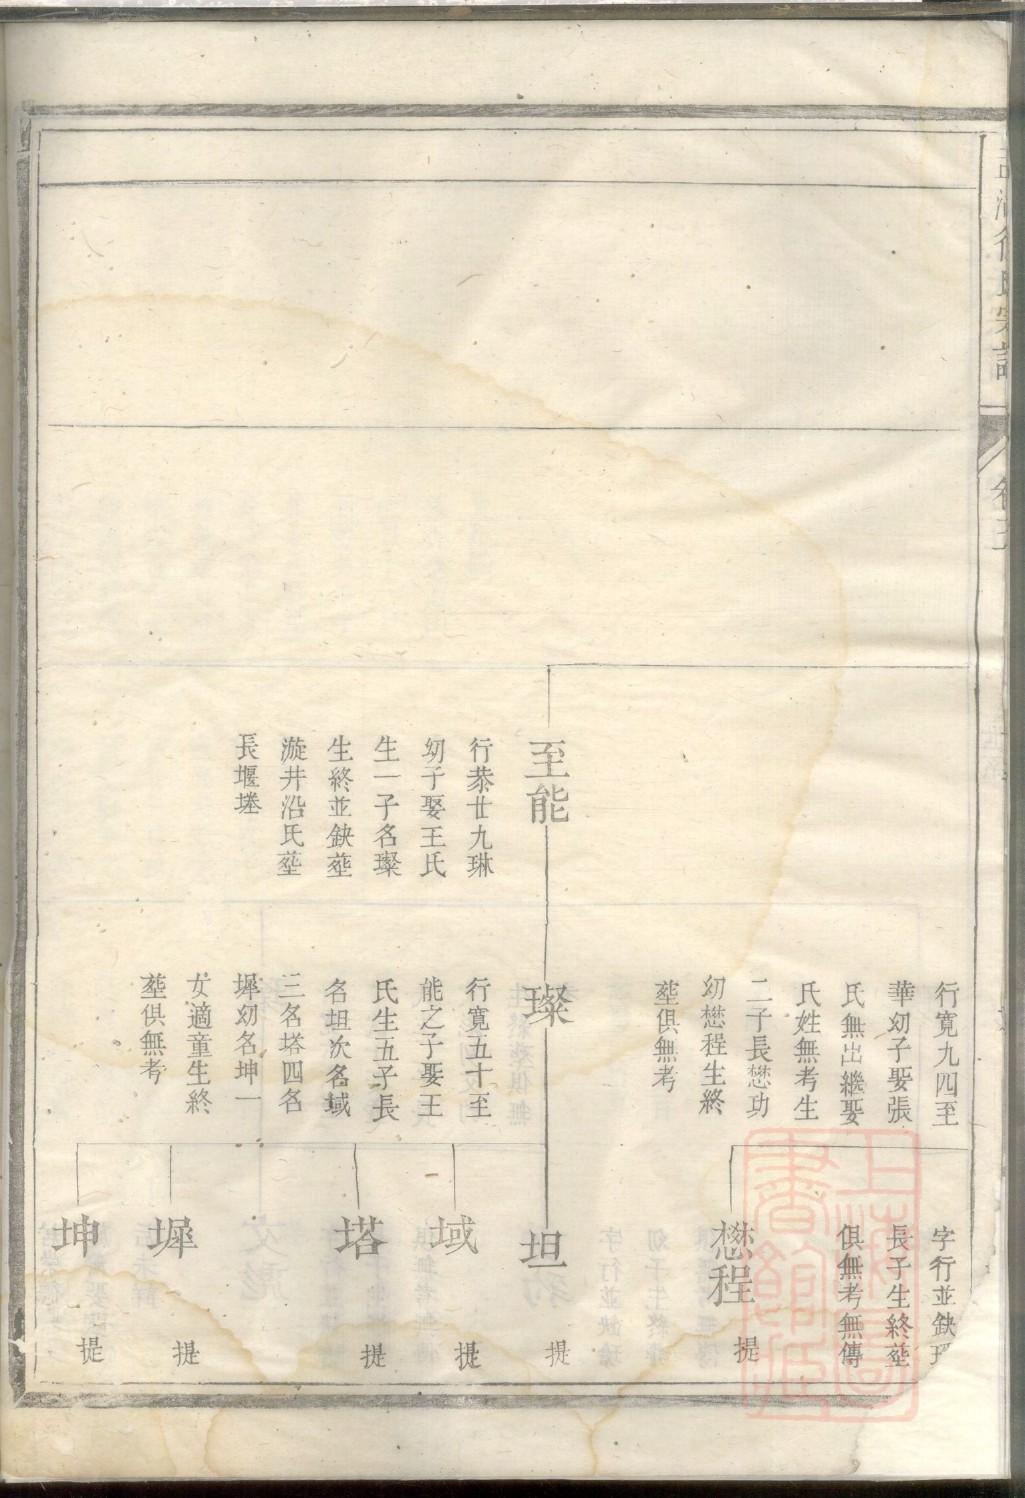 氏宗譜
至能
行恭廿九琳
幼子娶王氏
生一子名璨
生終並缺塟
漩井沿氏塟
長堰塂
行寬九四至
華幼子娶張
氏無出繼娶
氏姓無考生
二子長懋功
幼懋程生終
塟俱無考
璨
行寬五十至
能之子娶王
氏生五子長
名坦次名域
三名塔四名
墀幼名坤一
女適童生終
塟俱無考
字行並缺
長子生終塟
俱無考無傳
懋程
提
坦
提
域
提
塔
提
墀
提
坤
提